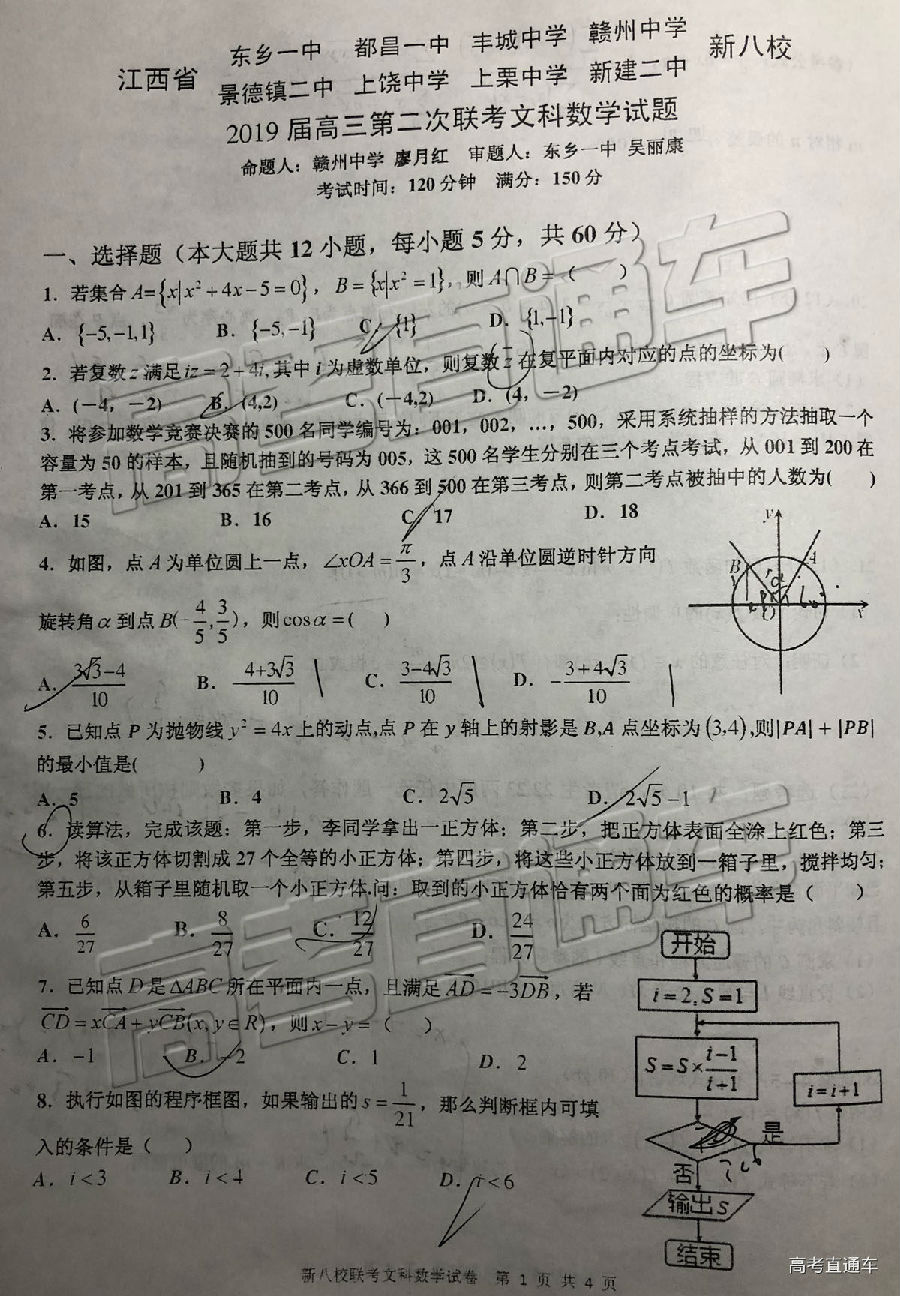 江西省 东乡一中 都昌一中 丰城中学 赣州中学 新八校
景德镇二中 上饶中学 上栗中学 新建二中
2019届高三第二次联考文科数学试题
命题人：赣州中学 廖月红 审题人：东乡一中 吴丽康
考试时间：120分钟 满分：150分
一、选择题（本大题共12小题，每小题5分，共60分）
1. 若集合A={x|x²+4x-5=0}，B={x|x²=1}，则A∩B=（ ）
A. {-5,-1,1} B. {-5,-1} C. {1} D. {1,-1}
2. 若复数z满足iz=2+4i,其中i为虚数单位，则复数z在复平面内对应的点的坐标为( )
A. (-4，-2) B. (4,2) C. (-4,2) D. (4，-2)
3. 将参加数学竞赛决赛的500名同学编号为：001，002，…，500，采用系统抽样的方法抽取一个
容量为50的样本，且随机抽到的号码为005，这500名学生分别在三个考点考试，从001到200在
第一考点，从201到365在第二考点，从366到500在第三考点，则第二考点被抽中的人数为( )
A. 15 B. 16 C. 17 D. 18
4. 如图，点A为单位圆上一点，∠xOA=π/3，点A沿单位圆逆时针方向
旋转角α到点B(-4/5,3/5)，则cosα=( )
y B A α O x
A. (3√3-4)/10 B. -(4+3√3)/10 C. (3-4√3)/10 D. -(3+4√3)/10
5. 已知点P为抛物线y²=4x上的动点,点P在y轴上的射影是B,A点坐标为(3,4),则|PA|+|PB|
的最小值是( )
A. 5 B. 4 C. 2√5 D. 2√5-1
6. 读算法，完成该题：第一步，李同学拿出一正方体；第二步，把正方体表面全涂上红色；第三
步，将该正方体切割成27个全等的小正方体；第四步，将这些小正方体放到一箱子里，搅拌均匀；
第五步，从箱子里随机取一个小正方体.问：取到的小正方体恰有两个面为红色的概率是（ ）
A. 6/27 B. 8/27 C. 12/27 D. 24/27
7. 已知点D是ΔABC所在平面内一点，且满足AD=-3DB，若
CD=xCA+yCB(x,y∈R)，则x-y=（ ）
A. -1 B. -2 C. 1 D. 2
8. 执行如图的程序框图，如果输出的s=1/21，那么判断框内可填
入的条件是（ ）
A. i<3 B. i<4 C. i<5 D. i<6
开始
i=2,S=1
S=S×(i-1)/(i+1)
i=i+1
是
否
输出S
结束
新八校联考文科数学试卷 第1页 共4页
高考直通车
高考直通车
高考直通车